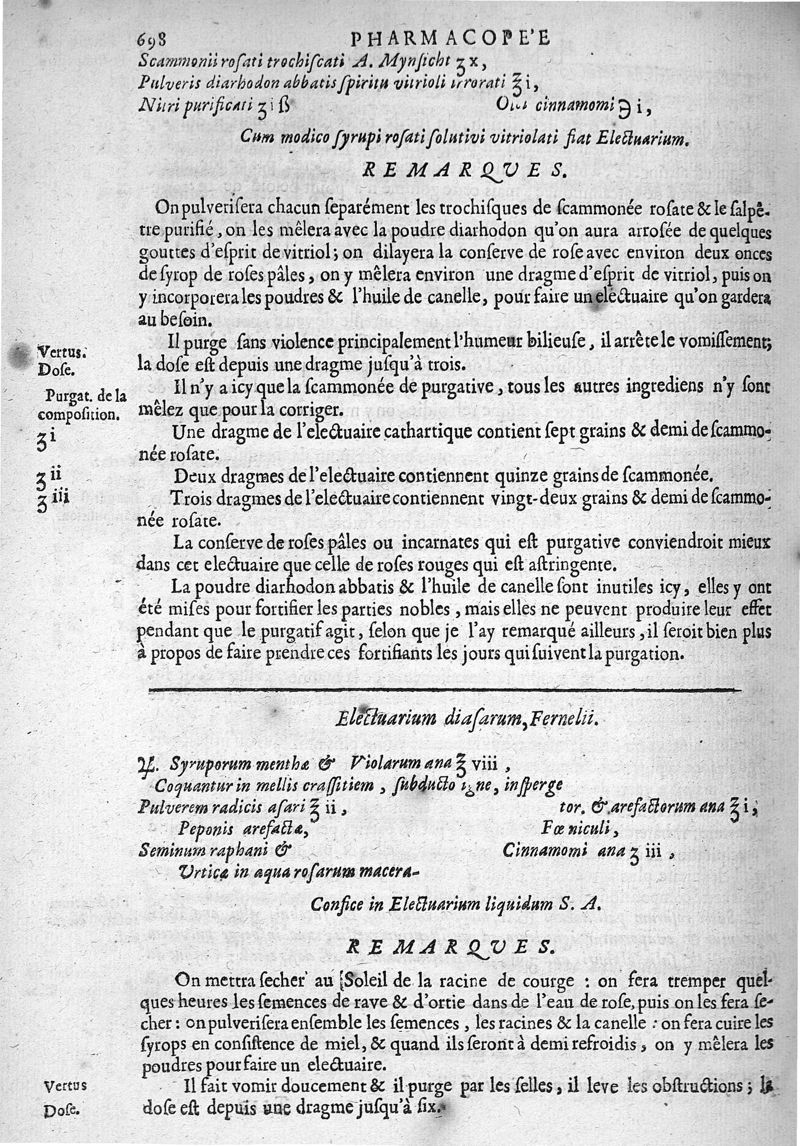 698 PHARMACOPE'E
Scammonii rosati trochiscati A. Mynsicht ʒ x,
Pulveris diarhodon abbatis spiritu vitrioli irrorati ℥ i,
Nitri purificati ʒ i ß Olei cinnamomi ℈ i,
Cum modico syrupi rosati solutivi vitriolati fiat Electuarium.
REMARQVES.
On pulverisera chacun separément les trochisques de scammonée rosate & le salpê-
tre purifié, on les mêlera avec la poudre diarhodon qu'on aura arrosée de quelques
gouttes d'esprit de vitriol; on dilayera la conserve de rose avec environ deux onces
de syrop de roses pâles, on y mêlera environ une dragme d'esprit de vitriol, puis on
y incorporera les poudres & l'huile de canelle, pour faire un electuaire qu'on gardera
au besoin.
Vertus. Il purge sans violence principalement l'humeur bilieuse, il arrête le vomissement;
Dose. la dose est depuis une dragme jusqu'à trois.
Purgat. de la Il n'y a icy que la scammonée de purgative, tous les autres ingrediens n'y sont
composition. mêlez que pour la corriger.
ʒ i Une dragme de l'electuaire cathartique contient sept grains & demi de scammo-
née rosate.
ʒ ii Deux dragmes de l'electuaire contiennent quinze grains de scammonée.
ʒ iii Trois dragmes de l'electuaire contiennent vingt-deux grains & demi de scammo-
née rosate.
La conserve de roses pâles ou incarnates qui est purgative conviendroit mieux
dans cet electuaire que celle de roses rouges qui est astringente.
La poudre diarhodon abbatis & l'huile de canelle sont inutiles icy, elles y ont
été mises pour fortifier les parties nobles, mais elles ne peuvent produire leur effet
pendant que le purgatif agit, selon que je l'ay remarqué ailleurs, il seroit bien plus
à propos de faire prendre ces fortifiants les jours qui suivent la purgation.
Electuarium diasarum, Fernelii.
♃. Syruporum menthæ & Violarum ana ℥ viii,
Coquantur in mellis crassitiem, subducto igne, insperge
Pulverem radicis asari ℥ ii, tor. & arefactorum ana ℥ i,
Peponis arefactæ, Fœniculi,
Seminum raphani & Cinnamomi ana ʒ iii,
Urticæ in aqua rosarum macera-
Confice in Electuarium liquidum S. A.
REMARQVES.
On mettra secher au Soleil de la racine de courge : on fera tremper quel-
ques heures les semences de rave & d'ortie dans de l'eau de rose, puis on les fera se-
cher : on pulverisera ensemble les semences, les racines & la canelle : on fera cuire les
syrops en consistence de miel, & quand ils seront à demi refroidis, on y mêlera les
poudres pour faire un electuaire.
Vertus Il fait vomir doucement & il purge par les selles, il leve les obstructions; la
Dose. dose est depuis une dragme jusqu'à six.